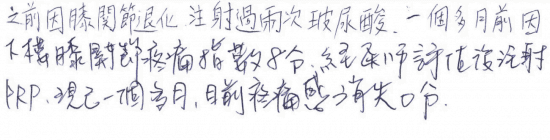 之前因膝關節退化 注射過兩次玻尿酸.一個多月前因
下樓膝關節疼痛指數8分.經醫師評估後注射
PRP.現已一個多月,目前疼痛感消失0分.